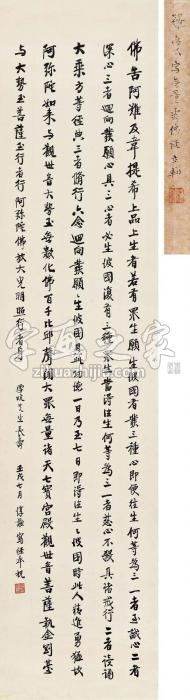 佛告阿難及韋提希上品上生者若有眾生願生彼國者發三種心即便往生何等為三一者至誠心二者
深心三者迴向發願心具三心者必生彼國復有三種眾生當得往生何等為三一者慈心不殺具諸戒行二者讀誦
大乘方等經典三者修行六念迴向發願願生彼國具此功德一日乃至七日即得往生生彼國時此人精進勇猛故
阿弥陀如來与觀世音大勢至無數化佛百千比丘聲聞大眾無量諸天七寶宮殿觀世音菩薩執金剛臺
与大勢至菩薩至行者前阿弥陀佛放大光明照行者身
先生長壽 壬戌七月
字画之家